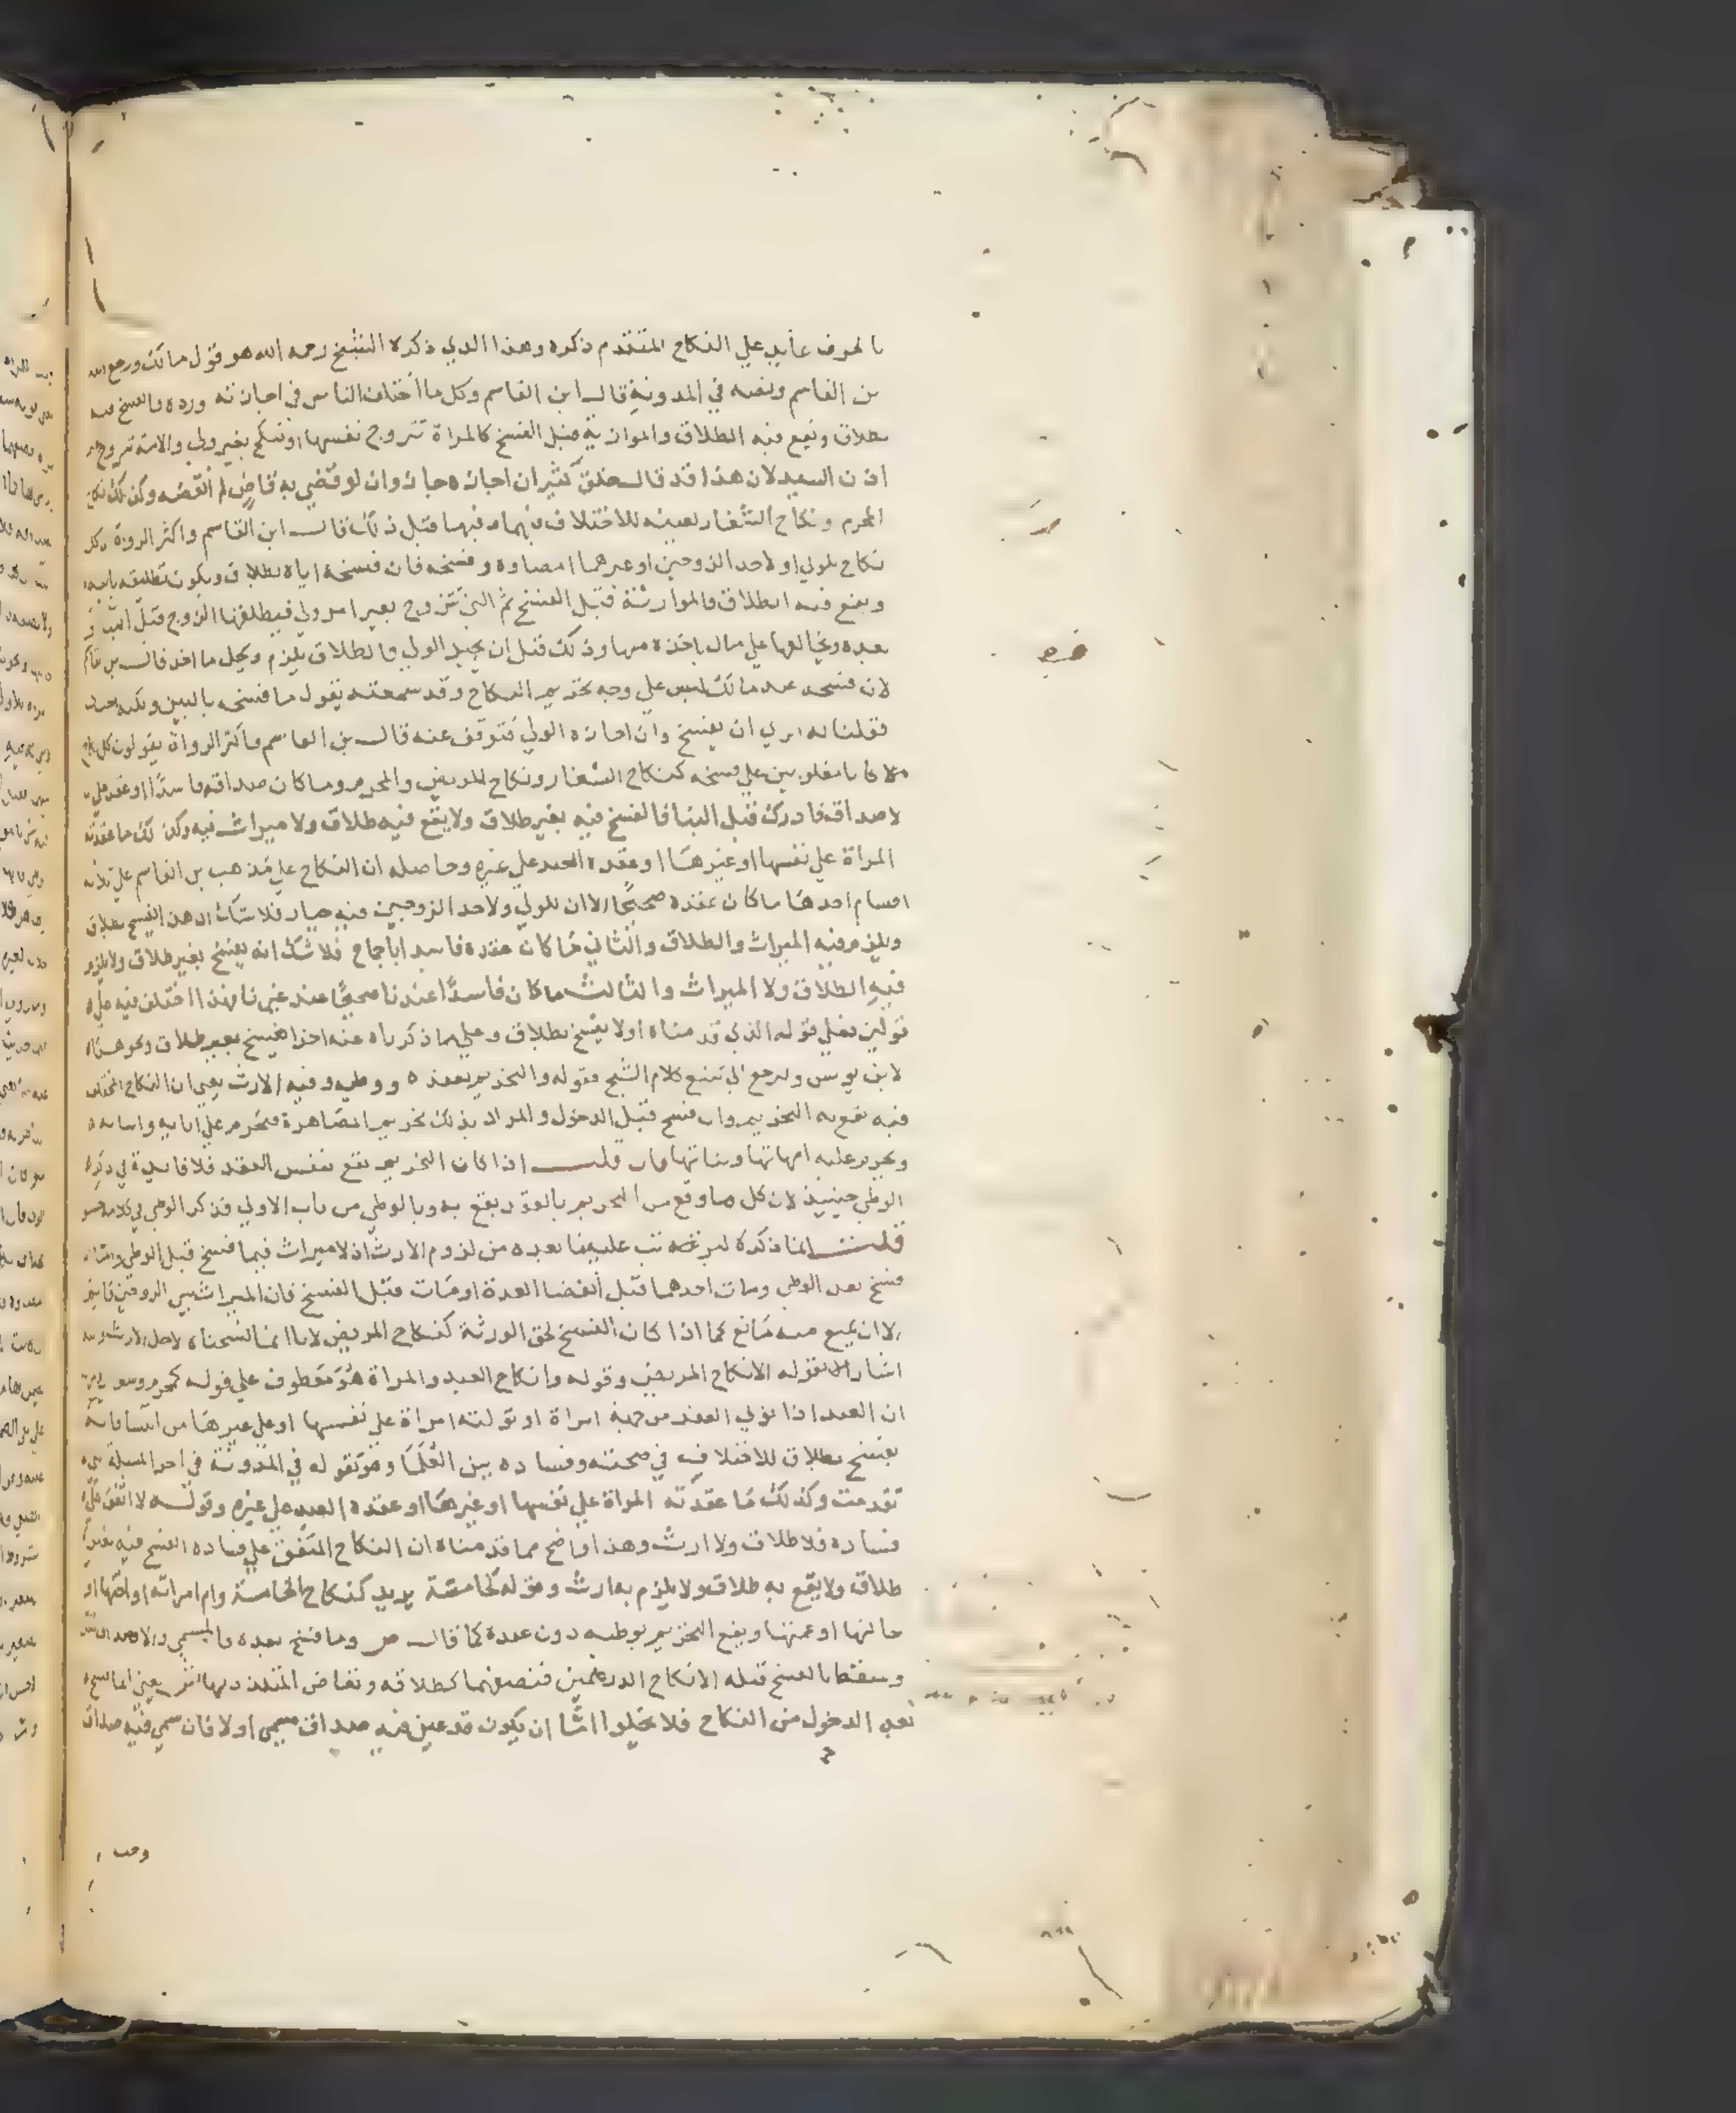 بالحرف عايد علي النكاح المتقدم ذكره وهذا الذي ذكره الشيخ رحمه الله هو قول مالك ورجع اليه
بن القاسم ونصه في المدونة قال ابن القاسم وكل ما اختلف الناس في اجازته ورده فالفسخ فيه
بطلاق ويقع فيه الطلاق والموارثة قبل الفسخ كالمراة تتزوج نفسها او تنكح بغير ولي والامة تتزوج بغير
اذن السيد لان هذا قد قال خلق كثير ان اجازه جاز وان لو قضي به قاض لم انقضه وكذلك نكاح
المحرم ونكاح الشغار بعينه للاختلاف فيهما وفيها قبل ذلك قال ابن القاسم واكثر الرواة وكل
نكاح للولي او لاحد الزوجين او غيرهما امضاوه وفسخه فان فسخه اياه بطلاق ويكون تطليقه باينه
ويقع فيه الطلاق والموارثة قبل الفسخ ثم التي تتزوج بغير امر ولي فيطلقها الزوج قبل البنا او
بعده ويخالعها علي مال ياخذه منها وذلك قبل ان يجيز الولي فالطلاق يلزم ويحل ما اخذ قال بن القاسم
لان فسخه عند مالك ليس علي وجه تحريم النكاح وقد سمعته يقول ما فسخه بالبين ولكنه احب
فقلنا له اتري ان يفسخ وان اجازه الولي فتوقف عنه قال بن القاسم واكثر الرواة يقولون كل نكاح
كانا مغلوبين علي فسخه كنكاح الشغار ونكاح المريض والمحرم وما كان صداقه فاسدا او عقد علي
لا صداق فادرك قبل البنا فالفسخ فيه بغير طلاق ولا يقع فيه طلاق ولا ميراث فيه وكذلك ما عقدته
المراة علي نفسها او غيرها او عقده العبد علي غيره وحاصله ان النكاح علي مذهب بن القاسم علي ثلاثة
اقسام احدها ما كان عقده صحيحا الا ان للولي ولاحد الزوجين فيه خيار فلا شك ان هذا الفسخ بطلاق
ويلزم فيه الميراث والطلاق والثاني ما كان عقده فاسدا باجماع فلا شك انه يفسخ بغير طلاق ولا يلزم
فيه الطلاق ولا الميراث والثالث ما كان فاسدا عندنا صحيحا عند غيرنا فهذا اختلف فيه علي
قولين فعلي قوله الذي قدمناه اولا يفسخ بطلاق وعلي ما ذكرناه عنه اخرا يفسخ بغير طلاق ونحو هذا
لابن يونس ولنرجع الي تتبع كلام الشيخ فقوله والتحريم بعقده ووطيه وفيه الارث يعني ان النكاح المختلف
فيه يقع به التحريم وان فسخ قبل الدخول والمراد بذلك تحريم المصاهرة فتحرم علي ابايه وابنايه
وتحرم عليه امهاتها وبناتها فان قلت اذا كان التحريم يقع بنفس العقد فلا فايدة في ذكره
الوطي حينيذ لان كل ما وقع من التحريم بالعقد يقع به وبالوطي من باب الاولي فذكر الوطي في كلامه حشو
قلت انما ذكره ليرتب عليه ما بعده من لزوم الارث اذ لا ميراث فيما فسخ قبل الوطي واما ما
فسخ بعد الوطي ومات احدهما قبل انقضا العدة او مات قبل الفسخ فان الميراث بين الزوجين ثابت
الا ان يمنع منه مانع كما اذا كان الفسخ لحق الورثة كنكاح المريض لانا انما فسخناه لاجل الارث واليه
اشار بقوله الا نكاح المريض وقوله وانكاح العبد والمراة هو معطوف علي قوله كمحرم وشغار يريد
ان العبد اذا تولي العقد من جهة امراة او تولته امراة علي نفسها او علي غيرها من النسا فانه
يفسخ بطلاق للاختلاف في صحته وفساده بين العلما وهو كقوله في المدونة في اخر المسيلة التي
تقدمت وكذلك ما عقدته المراة علي نفسها او غيرها او عقده العبد علي غيره وقوله لا اتفق علي
فساده فلا طلاق ولا ارث وهذا واضح مما قدمناه ان النكاح المتفق علي فساده الفسخ فيه بغير
طلاق ولا يقع به طلاق ولا يلزم به ارث وقوله كخامسة يريد كنكاح الخامسة وام امراته او اختها او
خالتها او عمتها ويقع التحريم بوطيه دون عقده كما قال ص وما فسخ بعده فالمسمي والا فصداق المثل
وسقط بالفسخ قبله الا نكاح الدرهمين فنصفهما كطلاقه وتعاض المتلذذ بها ش يعني اذا فسخ
بعد الدخول من النكاح فلا يخلوا اما ان يكون قد عين فيه صداق مسمي اولا فان سمي فيه صداق